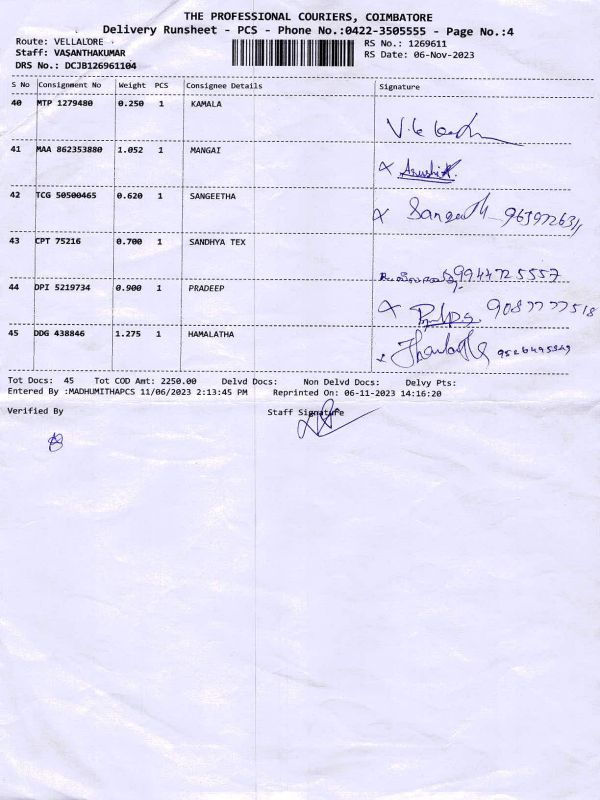 THE PROFESSIONAL COURIERS, COIMBATORE
Delivery Runsheet - PCS - Phone No.:0422-3505555 - Page No.:4
Route: VELLALORE
RS No.: 1269611
Staff: VASANTHAKUMAR
RS Date: 06-Nov-2023
DRS No.: DCJB126961104
S No Consignment No Weight PCS Consignee Details Signature
40 MTP 1279480 0.250 1 KAMALA
41 MAA 862353880 1.052 1 MANGAI
42 TCG 50500465 0.620 1 SANGEETHA
Sangeeth
43 CPT 75216 0.700 1 SANDHYA TEX
9944725557
44 DPI 5219734 0.900 1 PRADEEP
9087777518
45 DDG 438846 1.275 1 HAMALATHA
Tot Docs: 45 Tot COD Amt: 2250.00 Delvd Docs: Non Delvd Docs: Delvy Pts:
Entered By :MADHUMITHAPCS 11/06/2023 2:13:45 PM Reprinted On: 06-11-2023 14:16:20
Verified By Staff Signature